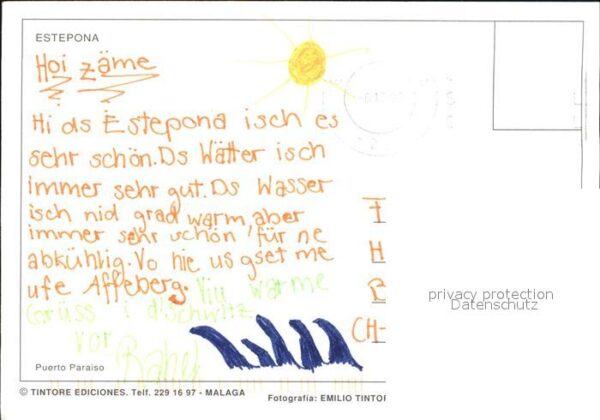 ESTEPONA
Hoi zäme
Hi ds Estepona isch es
sehr schön. Ds Wätter isch
immer sehr gut. Ds Wasser
isch nid grad warm, aber
immer sehr schön für ne
abkühlig. Vo hie us gset me
ufe Affeberg. Viu warme
Grüss i d'Schwitz
vor
CH-
privacy protection
Datenschutz
Puerto Paraiso
© TINTORE EDICIONES. Telf. 229 16 97 - MALAGA
Fotografía: EMILIO TINTOR